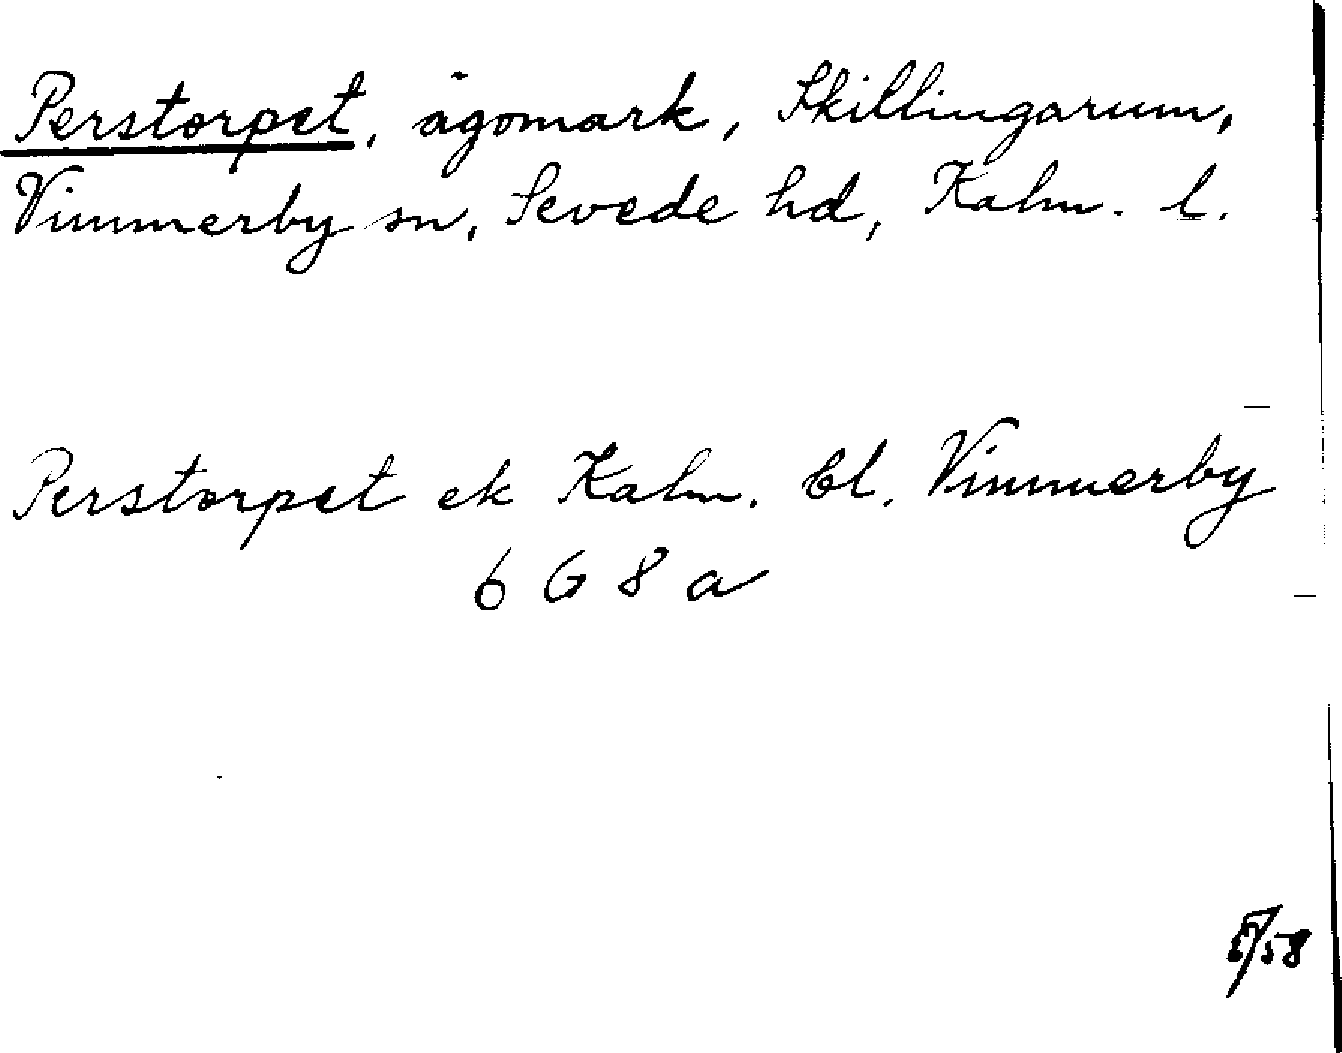 Perstorpet, ägomark, Skillingarum,
Vimmerby sn, Sevede hd, Kalm. l.
Perstorpet ek Kalm. bl. Vimmerby
6 G 8 a